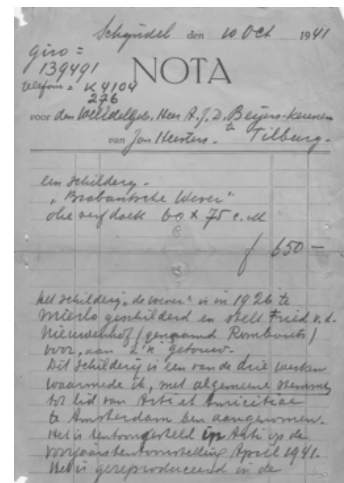 Schijndel den 10 Oct 1941
giro =
139491
telefoon = K 4104
276
NOTA
voor den WelEdelGeb. Heer A. J. D. Beijers-Keunen
te Tilburg.
van Jan Heesters.
een schilderij.
"Brabantsche Wever"
olie verf doek 60 x 75 c.M
f 650 -
Het schilderij "de Wever" is in 1926 te
Mierlo geschilderd en stelt Fried v.d.
Nieuwenhof (genaamd Rombouts)
voor, aan z'n getouw.
Dit schilderij is een van de drie werken
waarmede ik, met algemeene stemmen
tot lid van Arti et Amicitiae
te Amsterdam ben aangenomen.
Het is tentoongesteld in Arti op de
voorjaarstentoonstelling April 1941.
Het is gereproduceerd in de